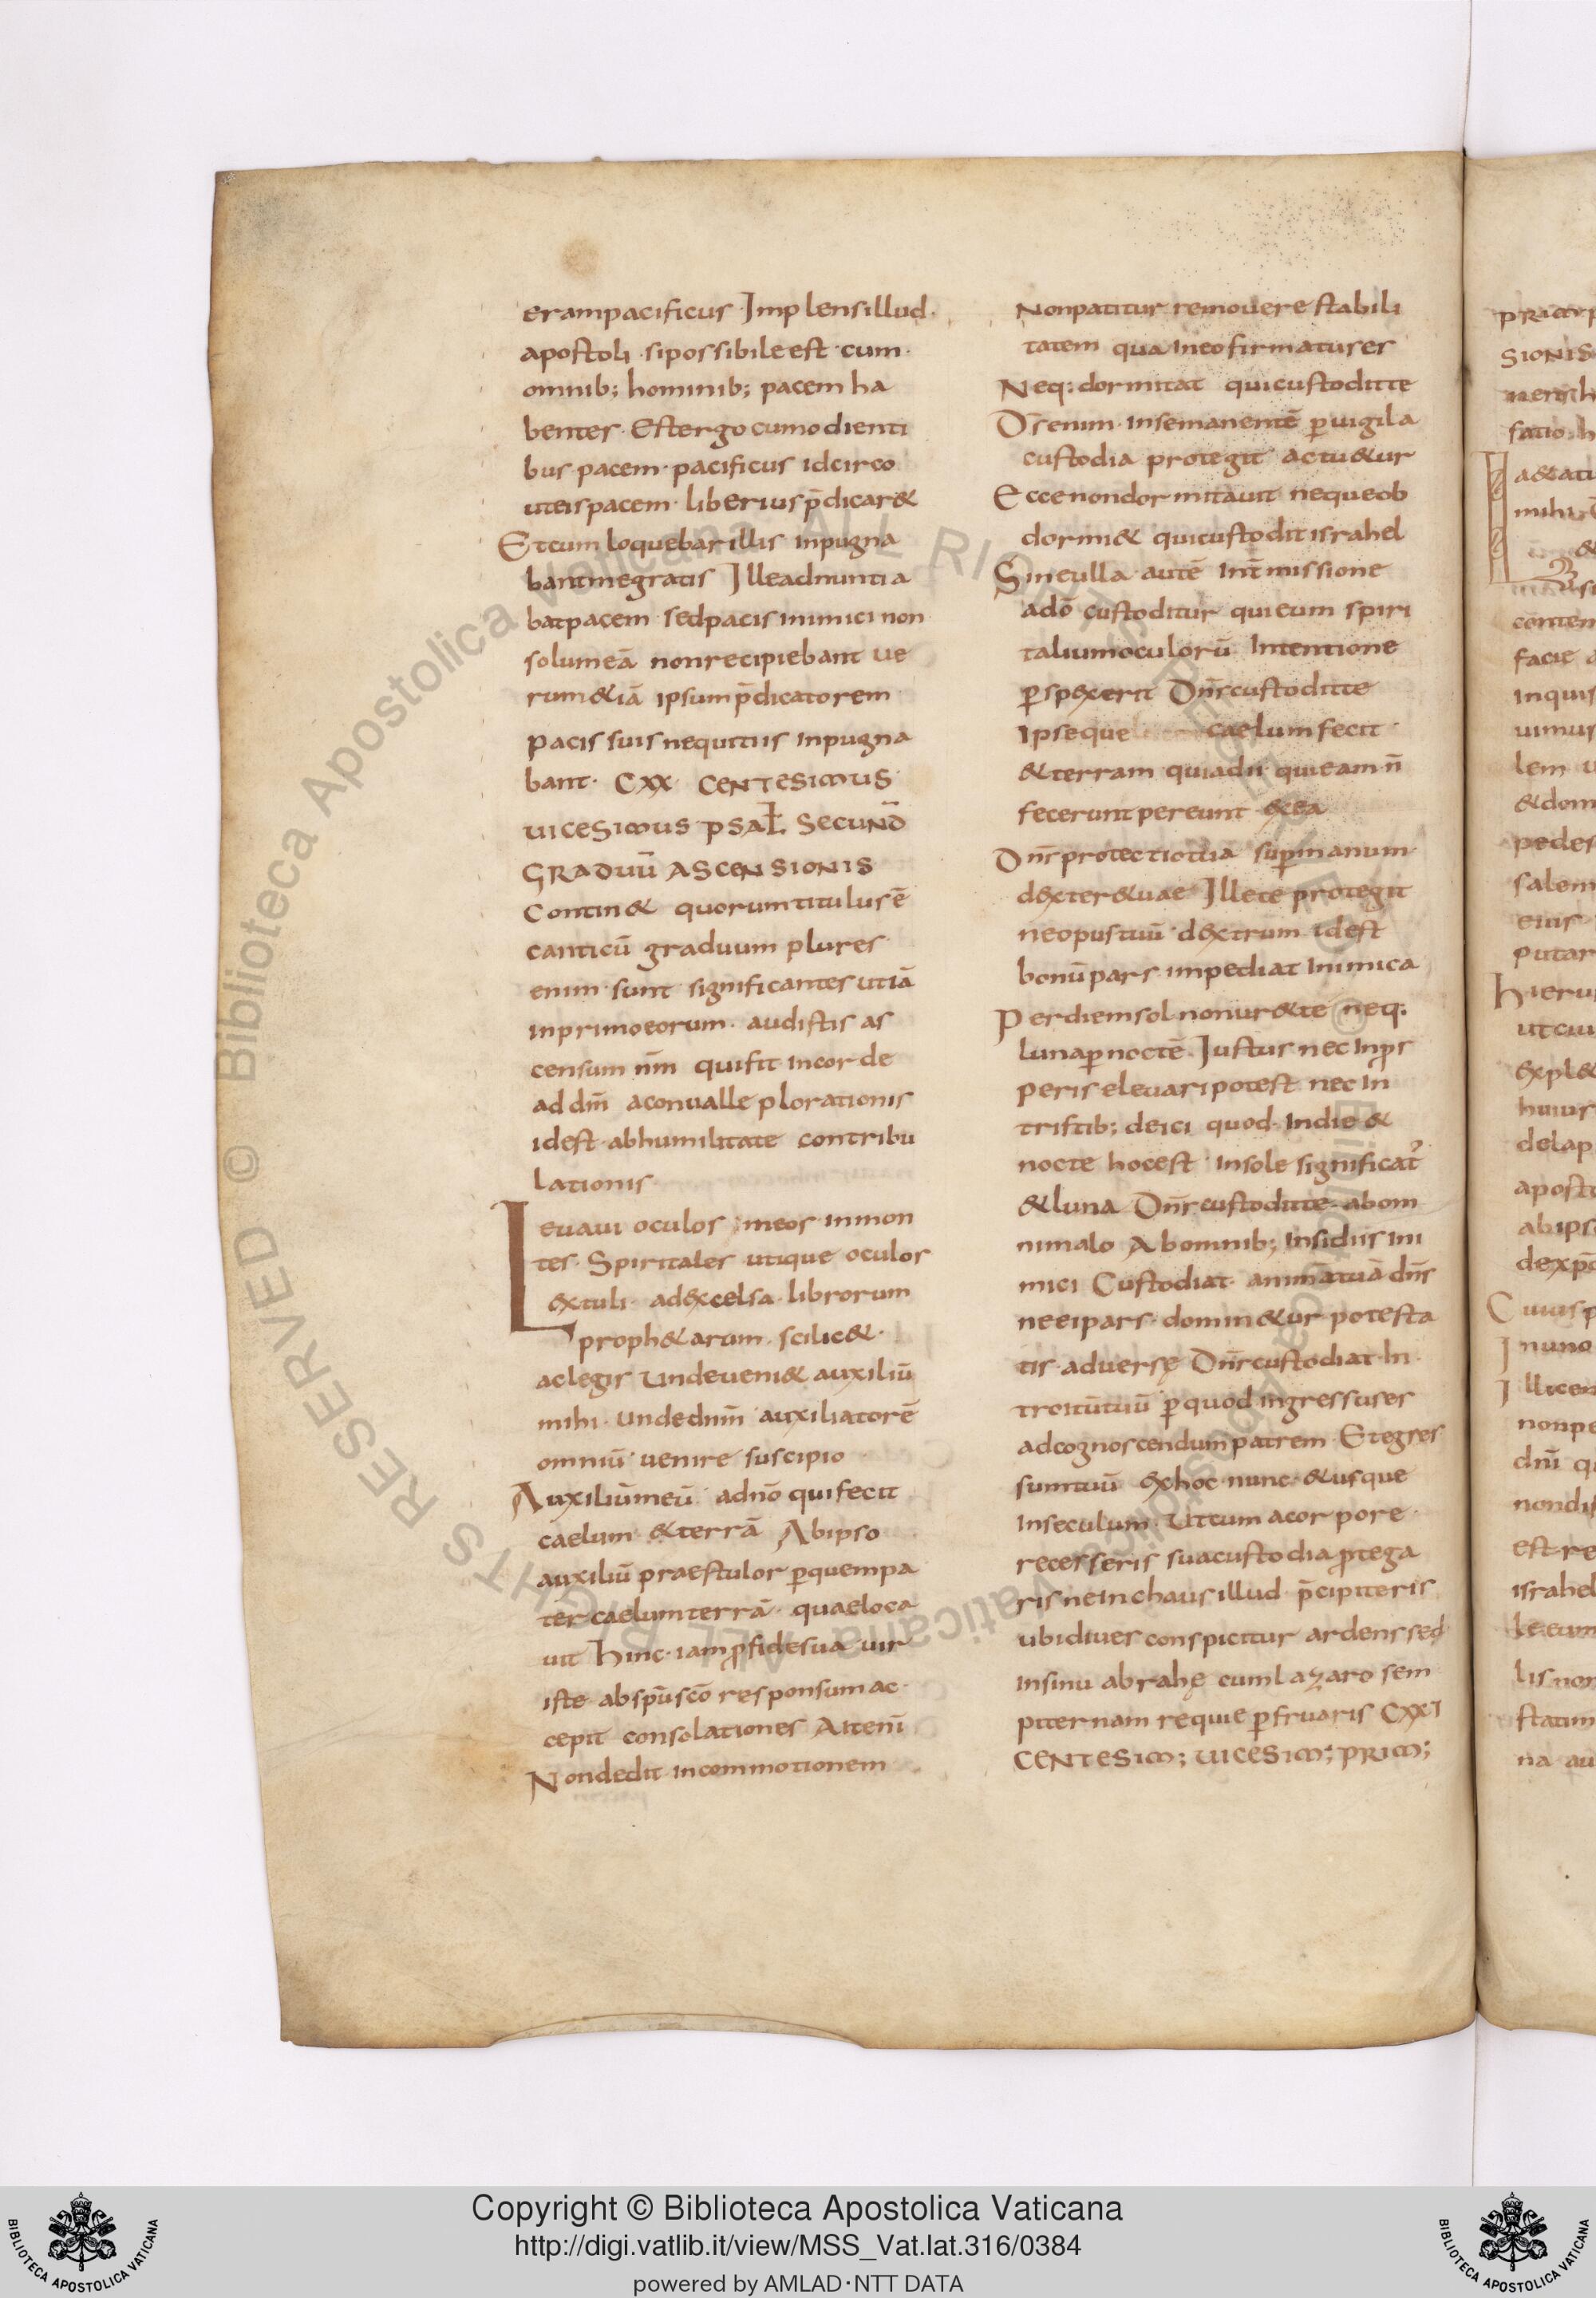 erampacificus Implensillud
apostoli sipossibileest cum
omnib; hominib; pacem ha
bentes Estergo cumodienti
bus pacem pacificus idcirco
uteispacem liberius p̄dicar&
Etcum loquebarillis inpugna
bantmegratis Illeadnuntia
batpacem sedpacis inimici non
solumeā nonrecipiebant ue
rum&iā ipsump̄dicatorem
pacis suisnequitiis inpugna
bant CXX CENTESIMUS
UICESIMUS PSAL̄ SECUND̄
GRADUŪ ASCENSIONIS
Contin& quorumtitulusē
canticū graduum plures
enim sunt significantes utiā
inprimoeorum audistis as
censum nm̄ quifit incorde
ad dm̄ aconualle plorationis
idest abhumilitate contribu
lationis
Leuaui oculos meos inmon
tes Spiritales utique oculos
extuli adexcelsa librorum
proph&arum scilic&
aclegis Undeueni& auxiliū
mihi undednm̄ auxiliatorē
omniū uenire suscipio
Auxiliūmeū adnō quifecit
caelum &terrā Abipso
auxiliū praestulor ꝑquempa
ter caelumterrā quaeloca
uit hinc iamꝓfidesua uir
iste abspū scō responsumac
cepit consolationes Aitenī
Nondedit incommotionem
Nonpatitur remouere stabili
tatem qua ineofirmatuses
Neq: dormitat quicustoditte
Ds̄enim insemanentē ꝑuigila
custodia protegit actu&ur
Eccenondormitauit nequeob
dormi& quicustoditisrahel
Sineulla autē int̄missione
adō custoditur quieum spiri
taliumoculorū Intentione
ꝑspexerit Dnr̄custoditte
Ipseque caelumfecit
&terram quiadii quieam n̄
fecerunt pereunt &ea
Dnr̄protectiotua suꝑmanum
dexter&uae Illete protegit
neopustuū dextrum idest
bonūpars impediat Inimica
Perdiemsol nonur&te neq:
lunaꝑnoctē Iustus nec Inꝓs
peris eleuaripotest nec In
tristib; deici quod Indie &
nocte hocest Insole significat᾽
&luna Dnr̄custoditte abom
nimalo Abomnib; Insidiis ini
mici Custodiat animātuā dn̄s
neeipars domin&ur potesta
tis aduersę Dnr̄custodiat In
troitūtuū ꝑquodingressuses
adcognoscendumpatrem Etegres
sumtuū exhoc nunc &usque
Inseculum Utcum acorpore
recesseris suacustodia ꝓtega
ris neInchaus illud p̄cipiteris
ubidiues conspicitur ardens sed
Insinu abrahę cumlazaro sem
piternam requie ꝑfruaris CXXI
CENTESIM; UICESIM; PRIM;
Copyright © Biblioteca Apostolica Vaticana
http://digi.vatlib.it/view/MSS_Vat.lat.316/0384
powered by AMLAD·NTT DATA